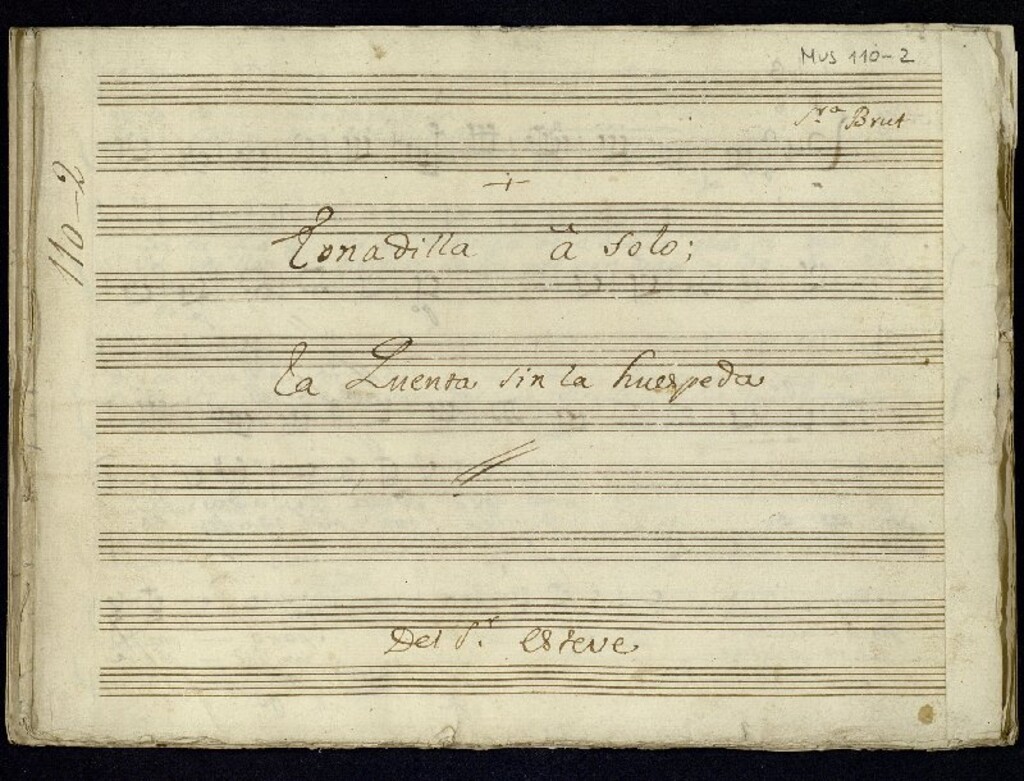 Mus 110-2
Sra Brut
110-2
Tonadilla â solo;
La Quenta sin la huespeda
Del Sr. esteve